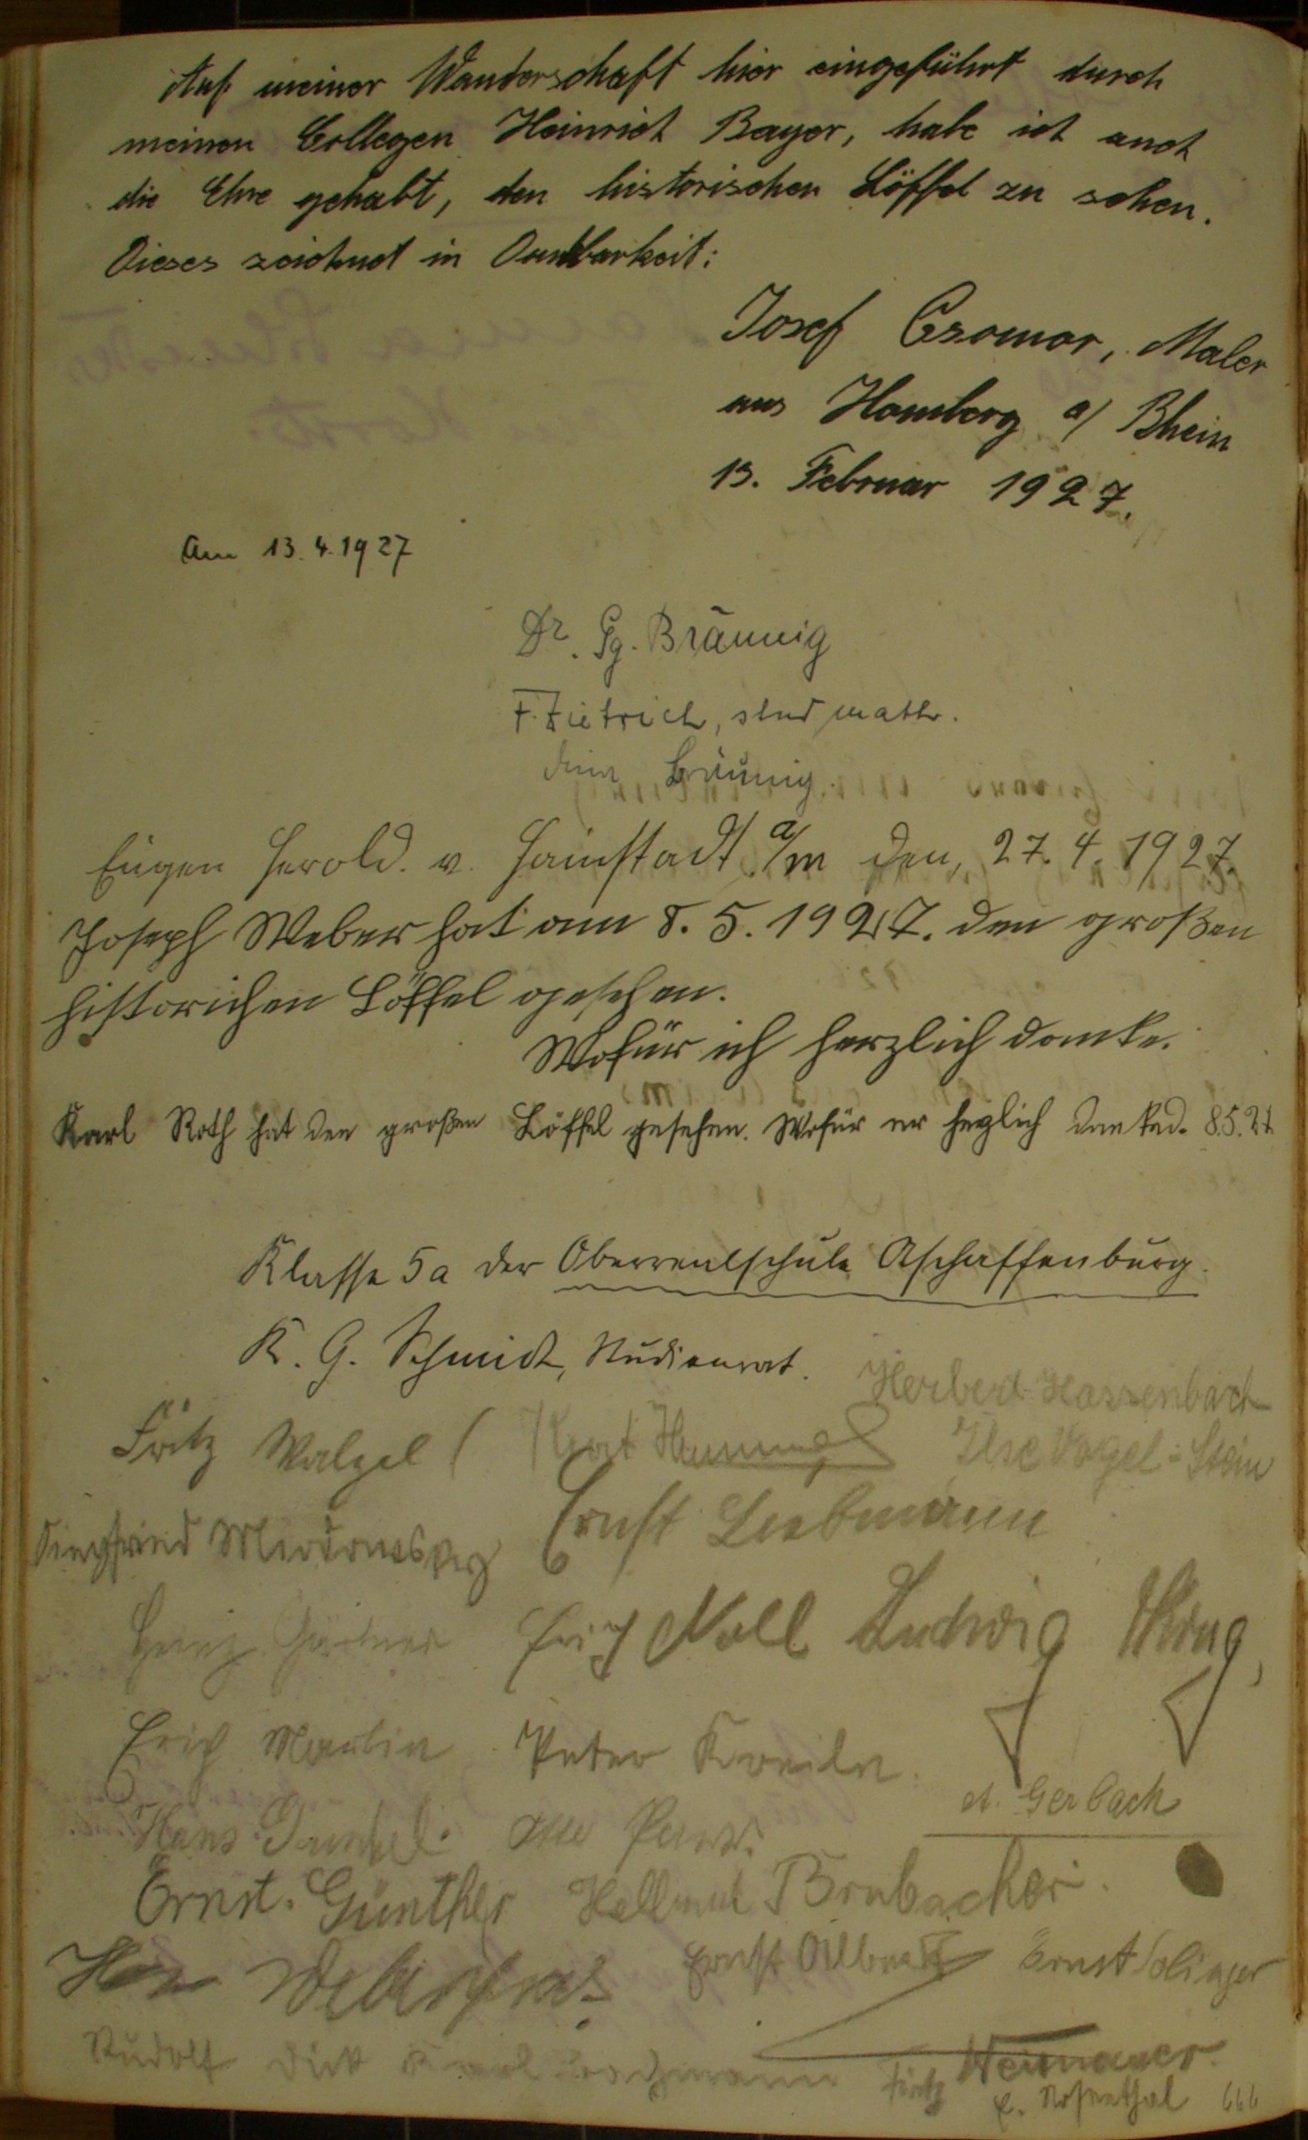 Auf meiner Wanderschaft hier eingeführt durch
meinen Collegen Heinrich Bayer, habe ich auch
die Ehre gehabt, den historischen Löffel zu sehen.
Dieses zeichnet in Dankbarkeit:
Josef Csomor, Maler
aus Homberg a/ Rhein
13. Februar 1927.
Am 13.4.1927
Dr. Gg. Bräunig
F. Dietrich, stud math.
Bräunig.
Eugen Herold. v. Hainstadt a/m den, 27.4.1927.
Joseph Weber hat am 8.5.1927. den großen
historichen Löffel gesehen.
Wofür ich herzlich danke.
Karl Roth hat den großen Löffel gesehen. Wofür er herzlich danked. 8.5.27
Klasse 5a der Oberrealschule Aschaffenburg.
K. G. Schmidt, Studienrat.
Herbert Hassenbach
Fritz Walzel Kurt Ilse Vogel-Stein
Siegfried Ernst Liebmann
Heinz Gärtner Erich Noll Ludwig
Erich Peter
A. Gerbach
Hans Dunkel
Ernst Günther Hellmut Brubacher.
Ernst Ernst Solinger
Rudolf Dick Karl
Fritz Weismauer.
E. Rosenthal